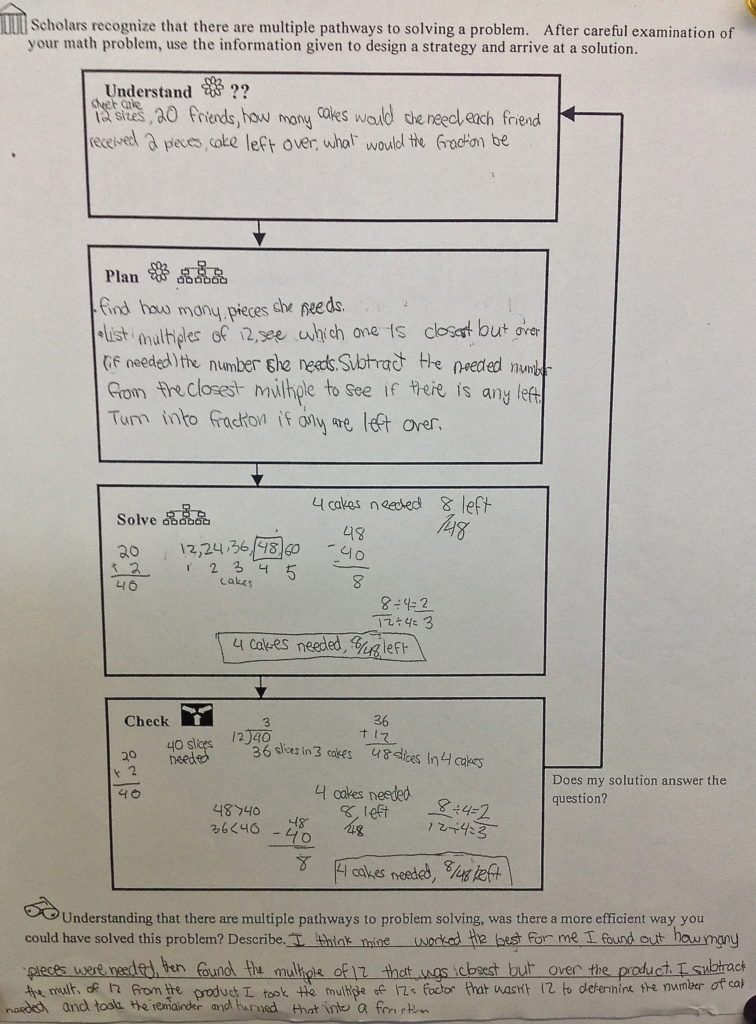 Scholars recognize that there are multiple pathways to solving a problem. After careful examination of
your math problem, use the information given to design a strategy and arrive at a solution.
Understand ??
sheet cake
12 sizes, 20 friends, how many cakes would she need, each friend
received 2 pieces, cake left over, what would the fraction be
Plan
• find how many pieces she needs.
• List multiples of 12, see which one is closest but over
(if needed) the number she needs. Subtract the needed number
from the closest multiple to see if there is any left.
Turn into fraction if any are left over.
Solve
4 cakes needed 8 left
/48
20
x 2
40
12, 24, 36, 48, 60
1 2 3 4 5
cakes
48
- 40
8
8÷4=2
12÷4=3
4 cakes needed, 8/48 left
Check
20
x 2
40
40 slices
needed
3
12)40
36 slices in 3 cakes
36
+ 12
48 slices in 4 cakes
48>40
36<40
48
- 40
8
4 cakes needed
8 left
/48
8÷4=2
12÷4=3
4 cakes needed, 8/48 left
Does my solution answer the
question?
Understanding that there are multiple pathways to problem solving, was there a more efficient way you
could have solved this problem? Describe. I think mine worked the best for me I found out how many
pieces were needed, then found the multiple of 12 that was closest but over the product. I subtract
the mult. of 12 from the product I took the multiple of 12s factor that wasn't 12 to determine the number of cak
needed and took the remainder and turned that into a fraction